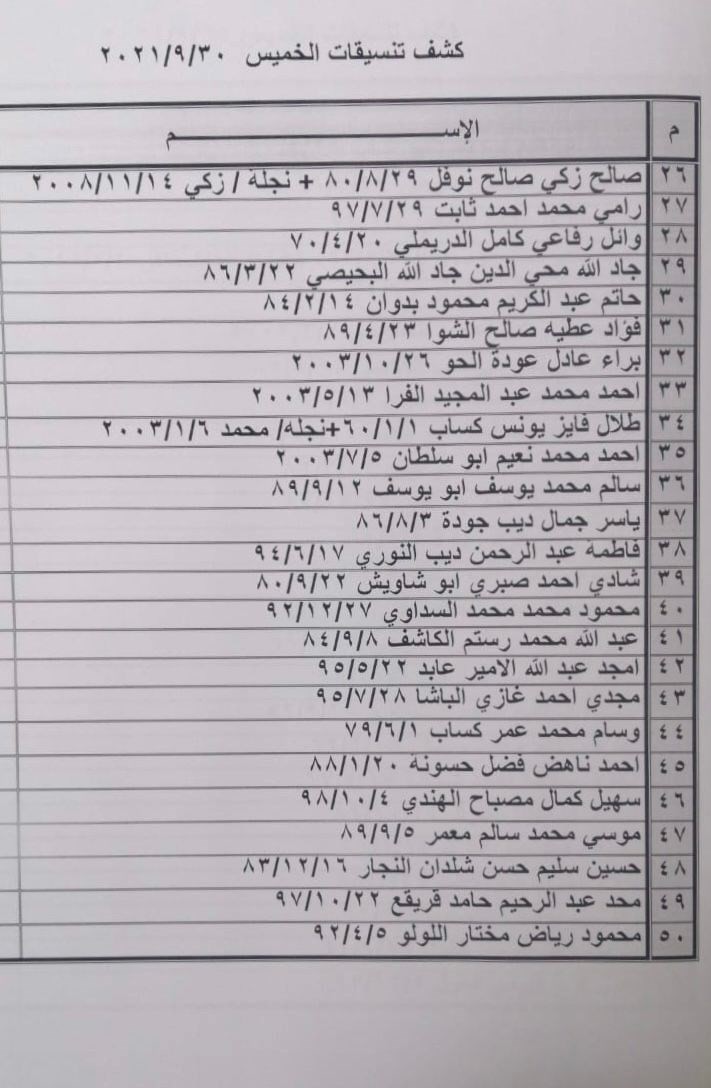 كشف تنسيقات الخميس ٢٠٢١/٩/٣٠
م الإســــــــــــم
٢٦ صالح زكي صالح نوفل ٨٠/٨/٢٩ + نجلة / زكي ٢٠٠٨/١١/١٤
٢٧ رامي محمد احمد ثابت ٩٧/٧/٢٩
٢٨ وائل رفاعي كامل الدريملي ٧٠/٤/٢٠
٢٩ جاد الله محي الدين جاد الله البحيصي ٨٦/٣/٢٢
٣٠ حاتم عبد الكريم محمود بدوان ٨٤/٢/١٤
٣١ فؤاد عطيه صالح الشوا ٨٩/٤/٢٣
٣٢ براء عادل عودة الحو ٢٠٠٣/١٠/٢٦
٣٣ احمد محمد عبد المجيد الفرا ٢٠٠٣/٥/١٣
٣٤ طلال فايز يونس كساب ٦٠/١/١+نجله/ محمد ٢٠٠٣/١/٦
٣٥ احمد محمد نعيم ابو سلطان ٢٠٠٣/٧/٥
٣٦ سالم محمد يوسف ابو يوسف ٨٩/٩/١٢
٣٧ ياسر جمال ديب جودة ٨٦/٨/٣
٣٨ فاطمة عبد الرحمن ديب النوري ٩٤/٦/١٧
٣٩ شادي احمد صبري ابو شاويش ٨٠/٩/٢٢
٤٠ محمود محمد محمد السداوي ٩٢/١٢/٢٧
٤١ عبد الله محمد رستم الكاشف ٨٤/٩/٨
٤٢ امجد عبد الله الامير عابد ٩٥/٥/٢٢
٤٣ مجدي احمد غازي الباشا ٩٥/٧/٢٨
٤٤ وسام محمد عمر كساب ٧٩/٦/١
٤٥ احمد ناهض فضل حسونة ٨٨/١/٢٠
٤٦ سهيل كمال مصباح الهندي ٩٨/١٠/٤
٤٧ موسي محمد سالم معمر ٨٩/٩/٥
٤٨ حسين سليم حسن شلدان النجار ٨٣/١٢/١٦
٤٩ محد عبد الرحيم حامد قريقع ٩٧/١٠/٢٢
٥٠ محمود رياض مختار اللولو ٩٢/٤/٥